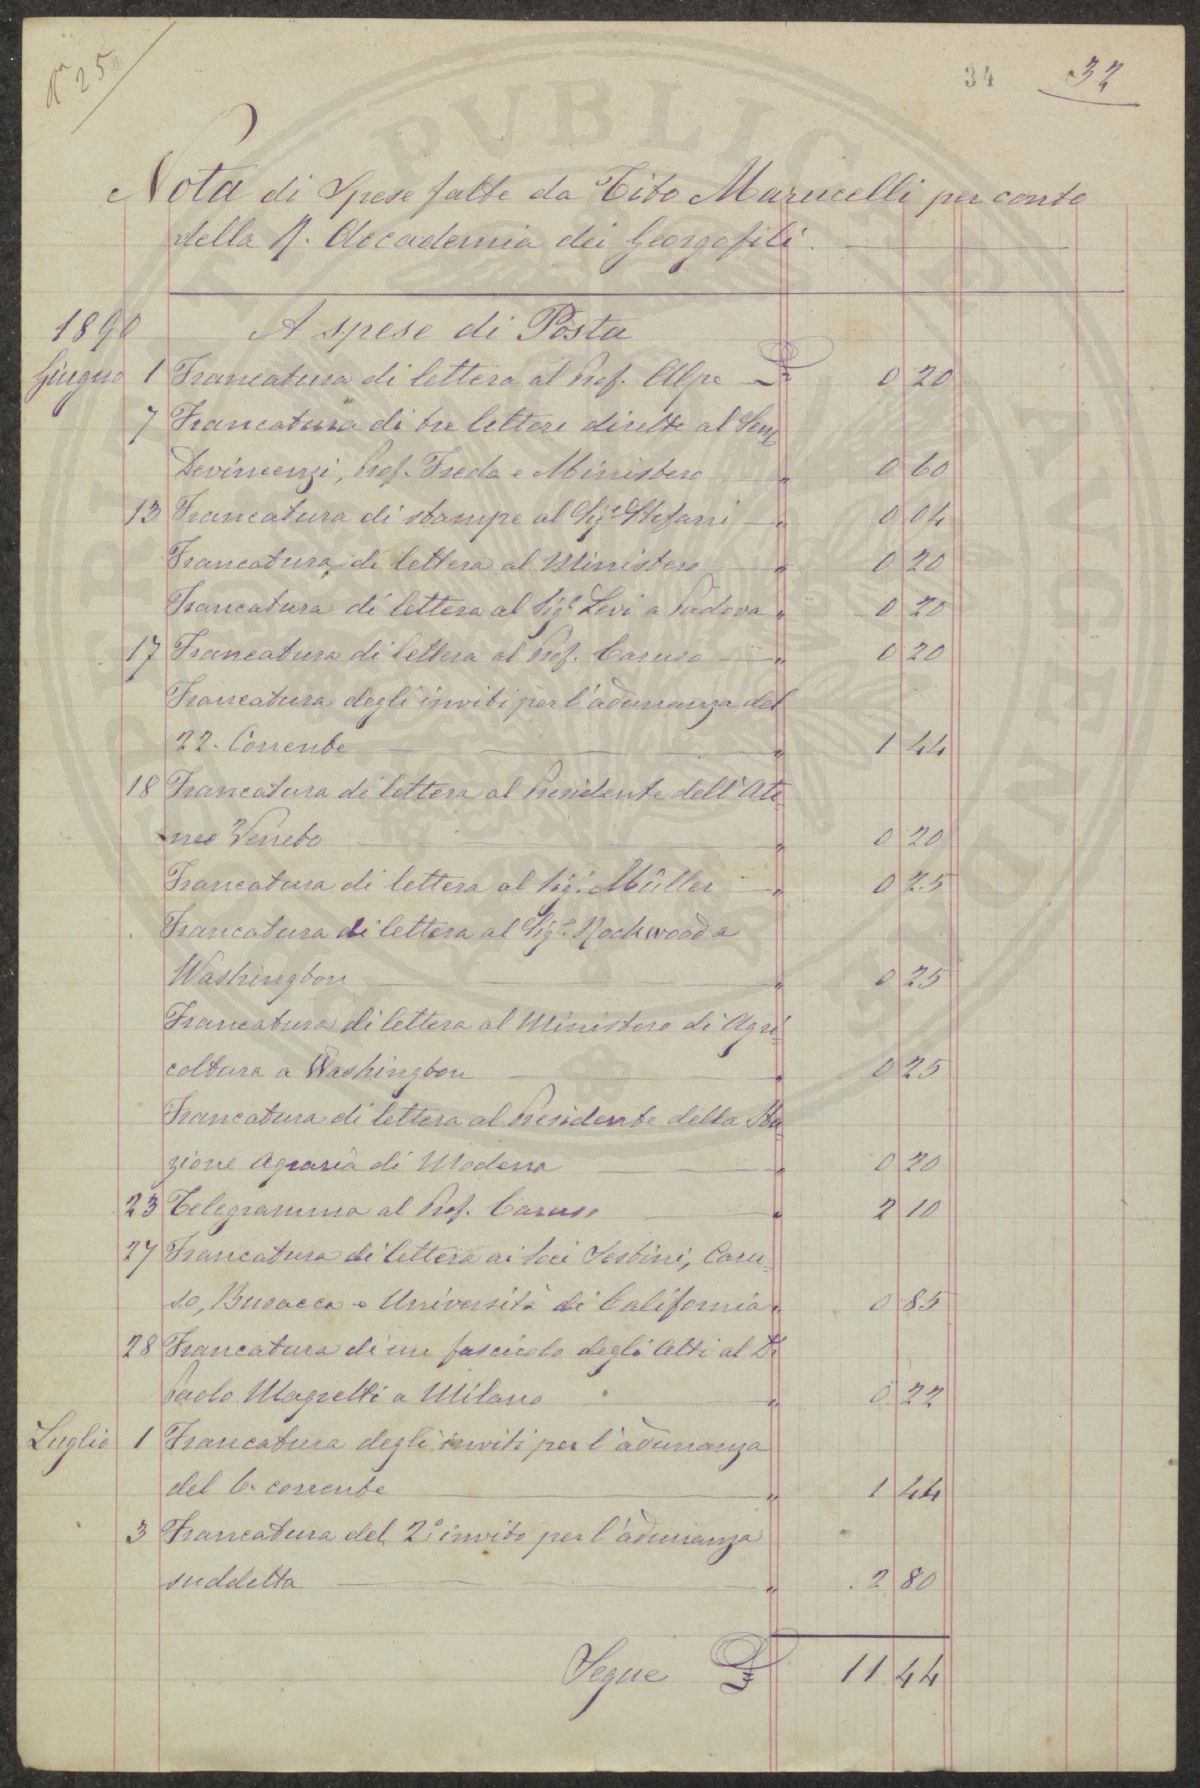 N° 25
34 32
Nota di Spese fatte da Tito Marucelli per conto
della R. Accademia dei Georgofili.
1890 A spese di Posta
Giugno 1 Francatura di lettera al Prof. Alpe £ 0 20
7 Francatura di tre lettere dirette al Sen.
Devincenzi, Prof. Freda e Ministero " 0 60
13 Francatura di stampe al Sig.e Stefani " 0 04
Francatura di lettera al Ministero " 0 20
Francatura di lettera al Sig.e Levi a Padova " 0 20
17 Francatura di lettera al Prof. Caruso " 0 20
Francatura degli inviti per l'adunanza del
22. Corrente " 1 44
18 Francatura di lettera al Presidente dell'Ate
neo Veneto " 0 20
Francatura di lettera al Sig.e Müller " 0 25
Francatura di lettera al Sig.e Rockwood a
Washington " 0 25
Francatura di lettera al Ministero di Agri
coltura a Washington " 0 25
Francatura di lettera al Presidente della Sta
zione Agraria di Modena " 0 20
23 Telegramma al Prof. Caruso " 2 10
27 Francatura di lettera ai Soci Sestini, Caru
so, Busacca e Università di California " 0 85
28 Francatura di un fascicolo degli Atti al Dr
Paolo Magretti a Milano " 0 22
Luglio 1 Francatura degli inviti per l'adunanza
del 6. corrente " 1 44
3 Francatura del 2° invito per l'adunanza
suddetta " 2 80
Segue £ 11 44